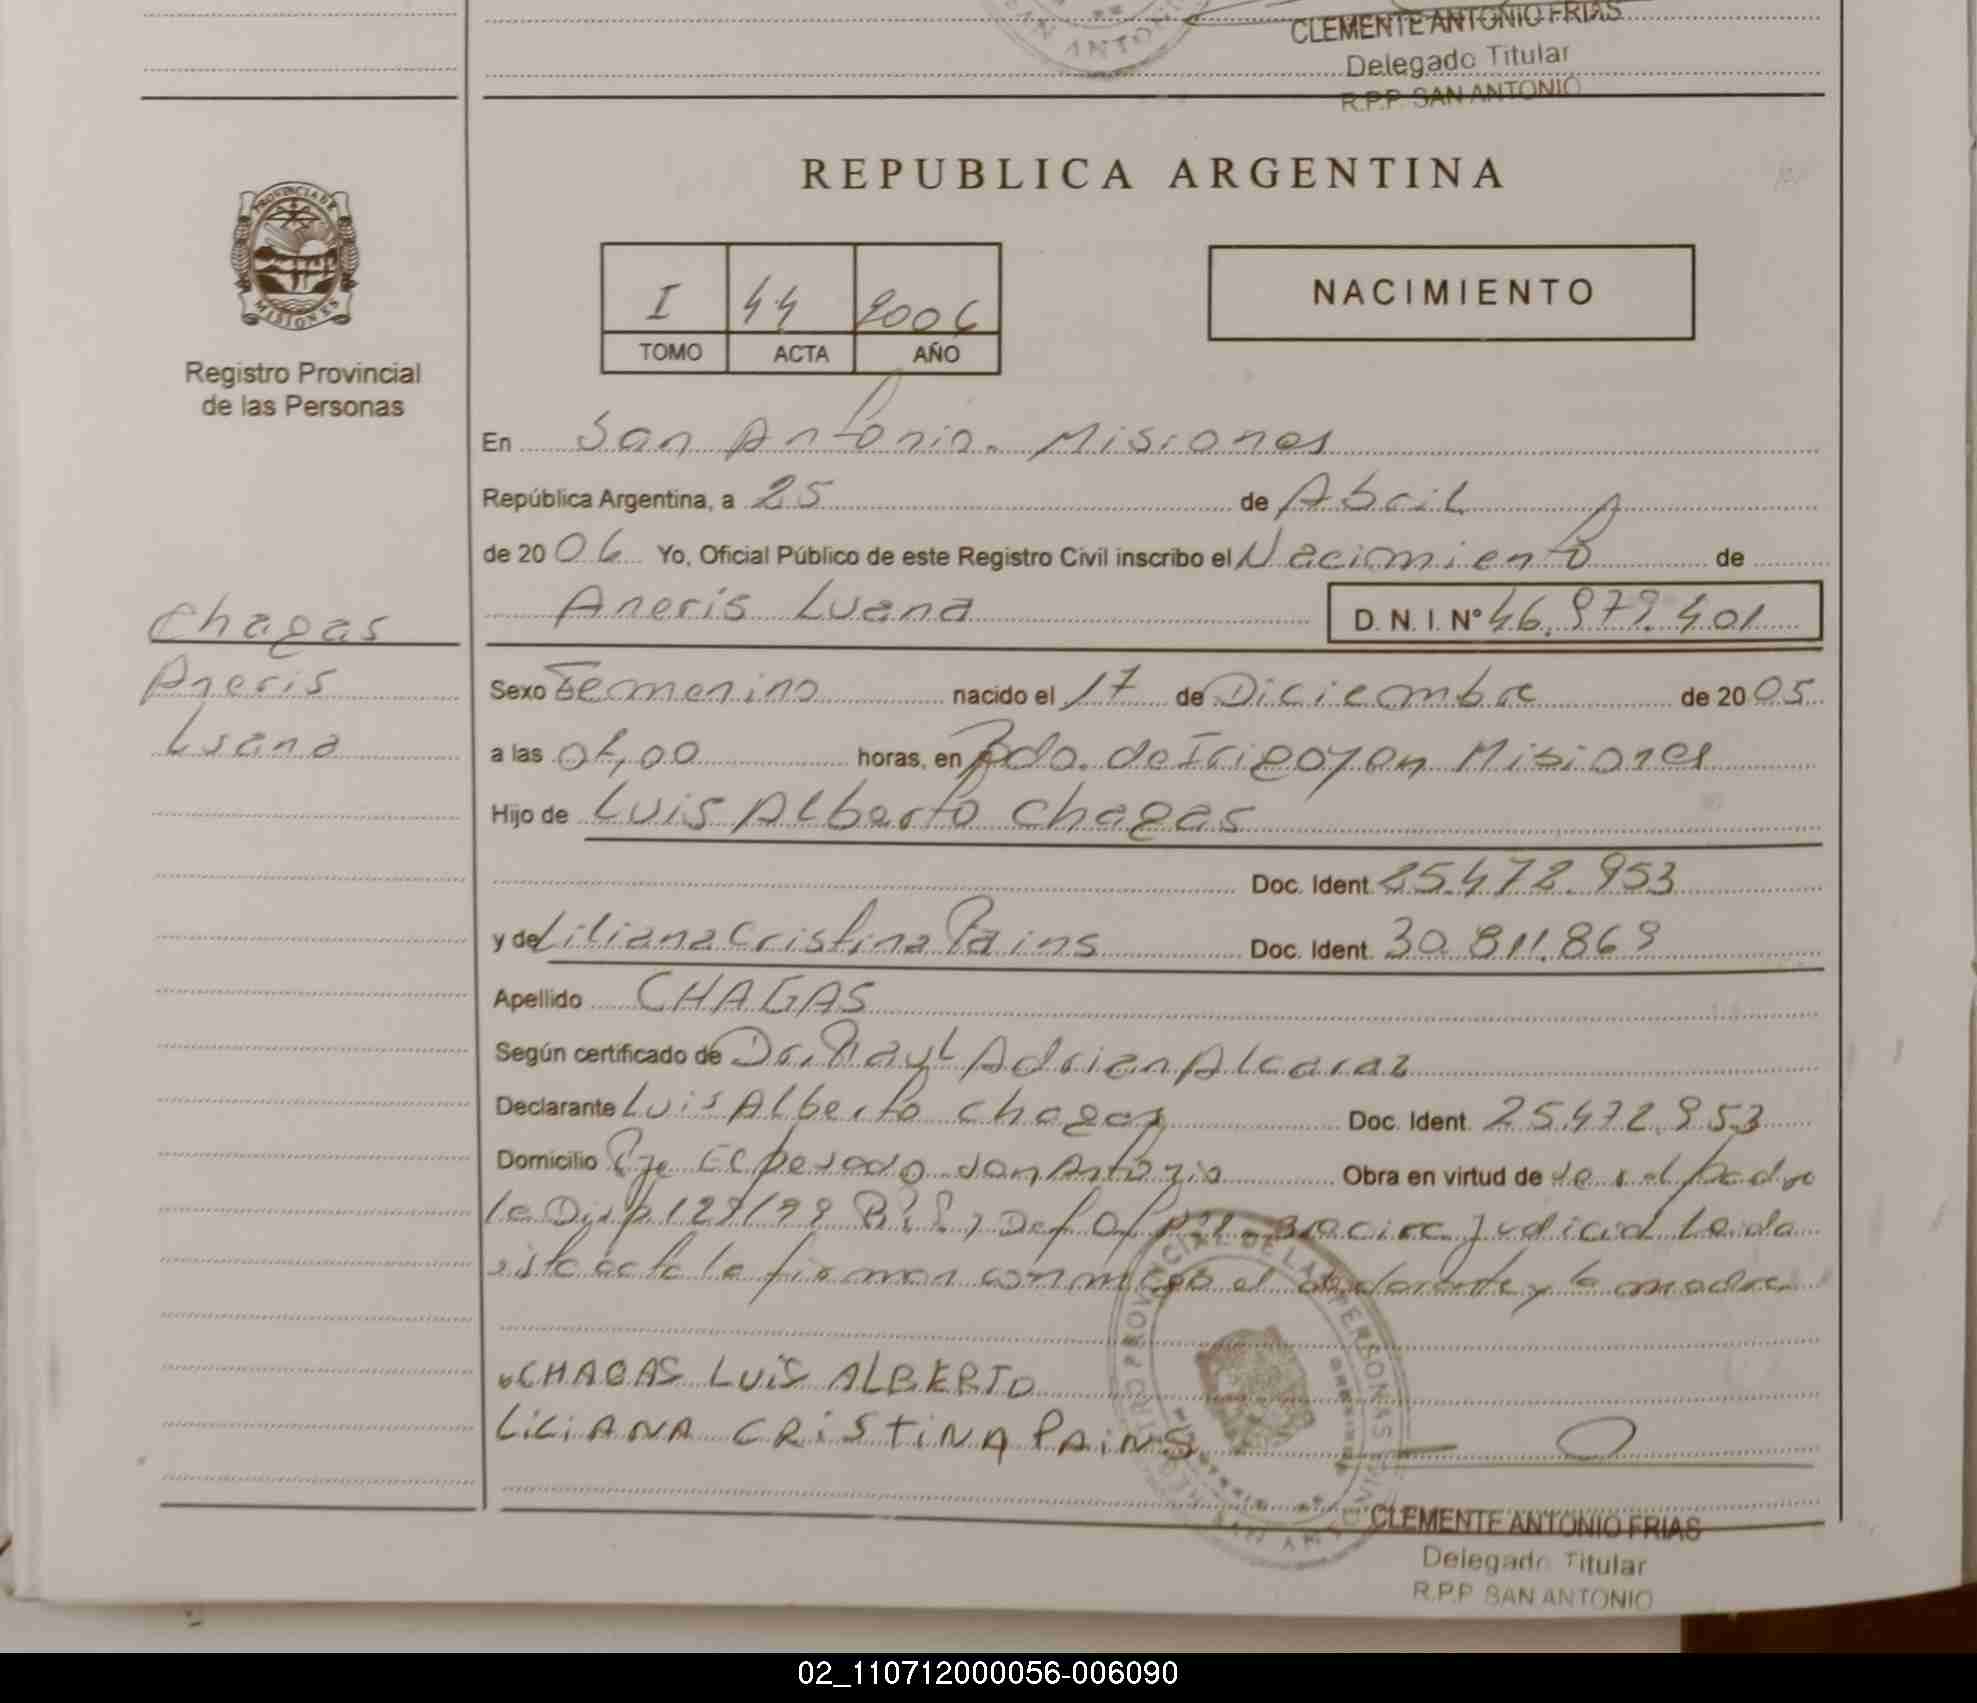 SAN ANTONIO
CLEMENTE ANTONIO FRIAS
Delegado Titular
R.P.P. SAN ANTONIO
PROVINCIA DE
MISIONES
Registro Provincial
de las Personas
REPUBLICA ARGENTINA
I 44 2006
TOMO ACTA AÑO
NACIMIENTO
En San Antonio. Misiones
República Argentina, a 25 de Abril
de 20 06 Yo, Oficial Público de este Registro Civil inscribo el Nacimiento de
Aneris Luana D. N. I. Nº 46.979.401
Chagas
Aneris
Luana
Sexo Femenino nacido el 17 de Diciembre de 20 05
a las horas, en Bdo. de Irigoyen Misiones
Hijo de Luis Alberto Chagas
Doc. Ident. 25.472.953
y de Liliana Cristina Pains Doc. Ident. 30.811.869
Apellido CHAGAS
Según certificado de Dr. Raul Adrian Alcaraz
Declarante Luis Alberto Chagas Doc. Ident. 25.472.953
Domicilio Pje San Antonio Obra en virtud de ser el padre
Judicial Leida
esta acta la firman conmigo el declarante y la madre
CHAGAS LUIS ALBERTO
LILIANA CRISTINA PAINS
REGISTRO PROVINCIAL DE LAS PERSONAS
SAN ANTONIO
CLEMENTE ANTONIO FRIAS
Delegado Titular
R.P.P SAN ANTONIO
02_110712000056-006090